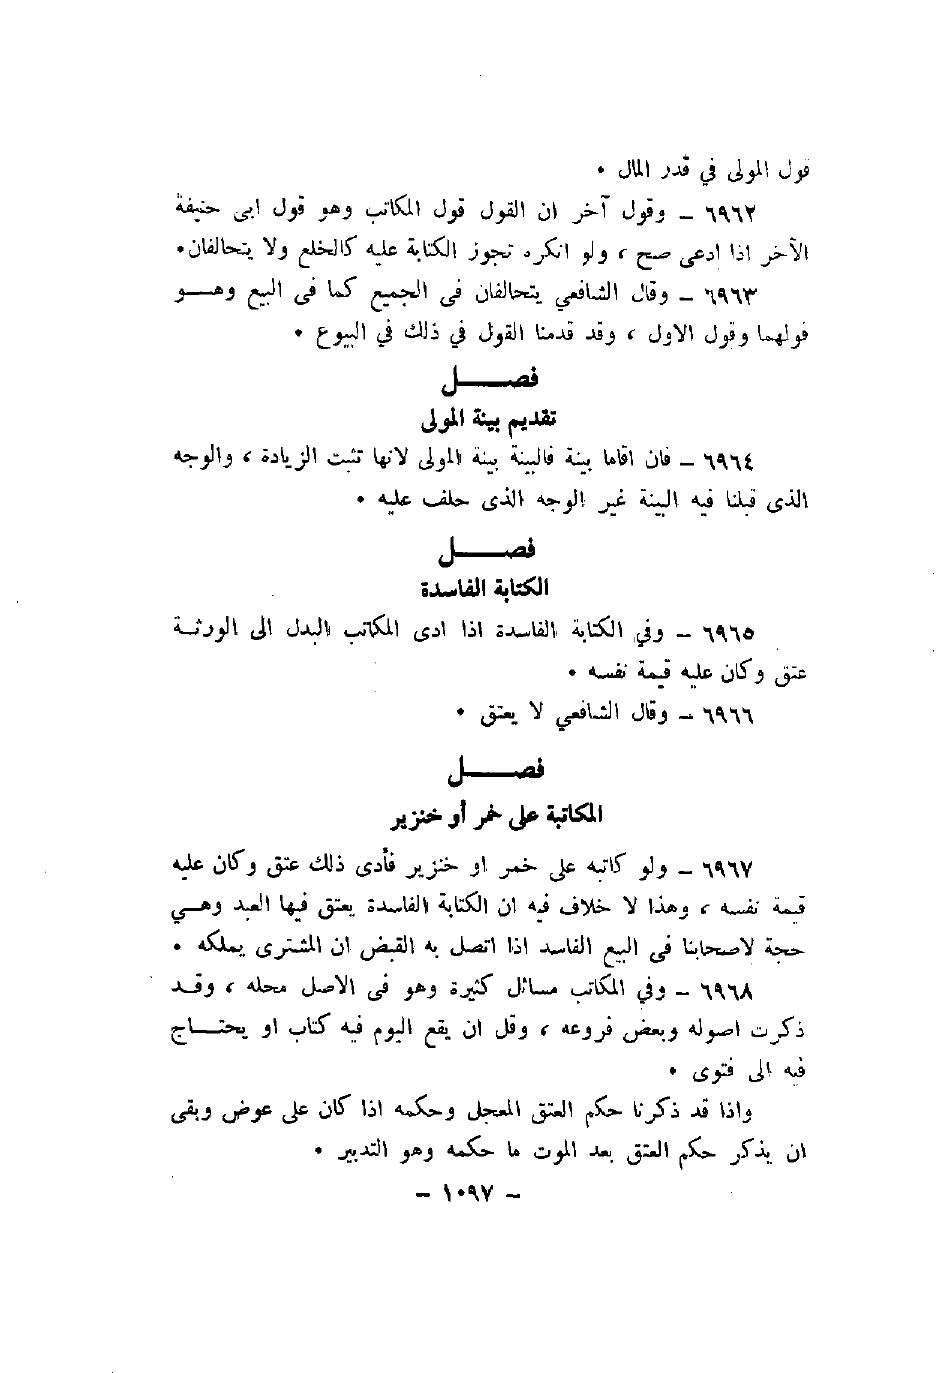 قول المولى في قدر المال .
٦٩٦٢ – وقول آخر ان القول قول المكاتب وهو قول ابى حنيفة
الآخر اذا ادعى صح ، ولو انكره تجوز الكتابة عليه كالخلع ولا يتحالفان .
٦٩٦٣ – وقال الشافعي يتحالفان فى الجميع كما فى البيع وهـــو
قولهما وقول الاول ، وقد قدمنا القول في ذلك في البيوع .
فصــــل
تقديم بينة المولى
٦٩٦٤ – فان اقاما بينة فالبينة بينة المولى لانها تثبت الزيادة ، والوجه
الذى قبلنا فيه البينة غير الوجه الذى حلف عليه .
فصــــل
الكتابة الفاسدة
٦٩٦٥ – وفي الكتابة الفاسدة اذا ادى المكاتب البدل الى الورثـة
عتق وكان عليه قيمة نفسه .
٦٩٦٦ – وقال الشافعي لا يعتق .
فصــــل
المكاتبة على خمر أو خنزير
٦٩٦٧ – ولو كاتبه على خمر او خنزير فأدى ذلك عتق وكان عليه
قيمة نفسه ، وهذا لا خلاف فيه ان الكتابة الفاسدة يعتق فيها العبد وهـي
حجة لاصحابنا فى البيع الفاسد اذا اتصل به القبض ان المشترى يملكه .
٦٩٦٨ – وفي المكاتب مسائل كثيرة وهو فى الاصل محله ، وقـد
ذكرت اصوله وبعض فروعه ، وقل ان يقع اليوم فيه كتاب او يحتــاج
فيه الى فتوى .
واذا قد ذكرنا حكم العتق المعجل وحكمه اذا كان على عوض وبقى
ان يذكر حكم العتق بعد الموت ما حكمه وهو التدبير .
– ١٠٩٧ –